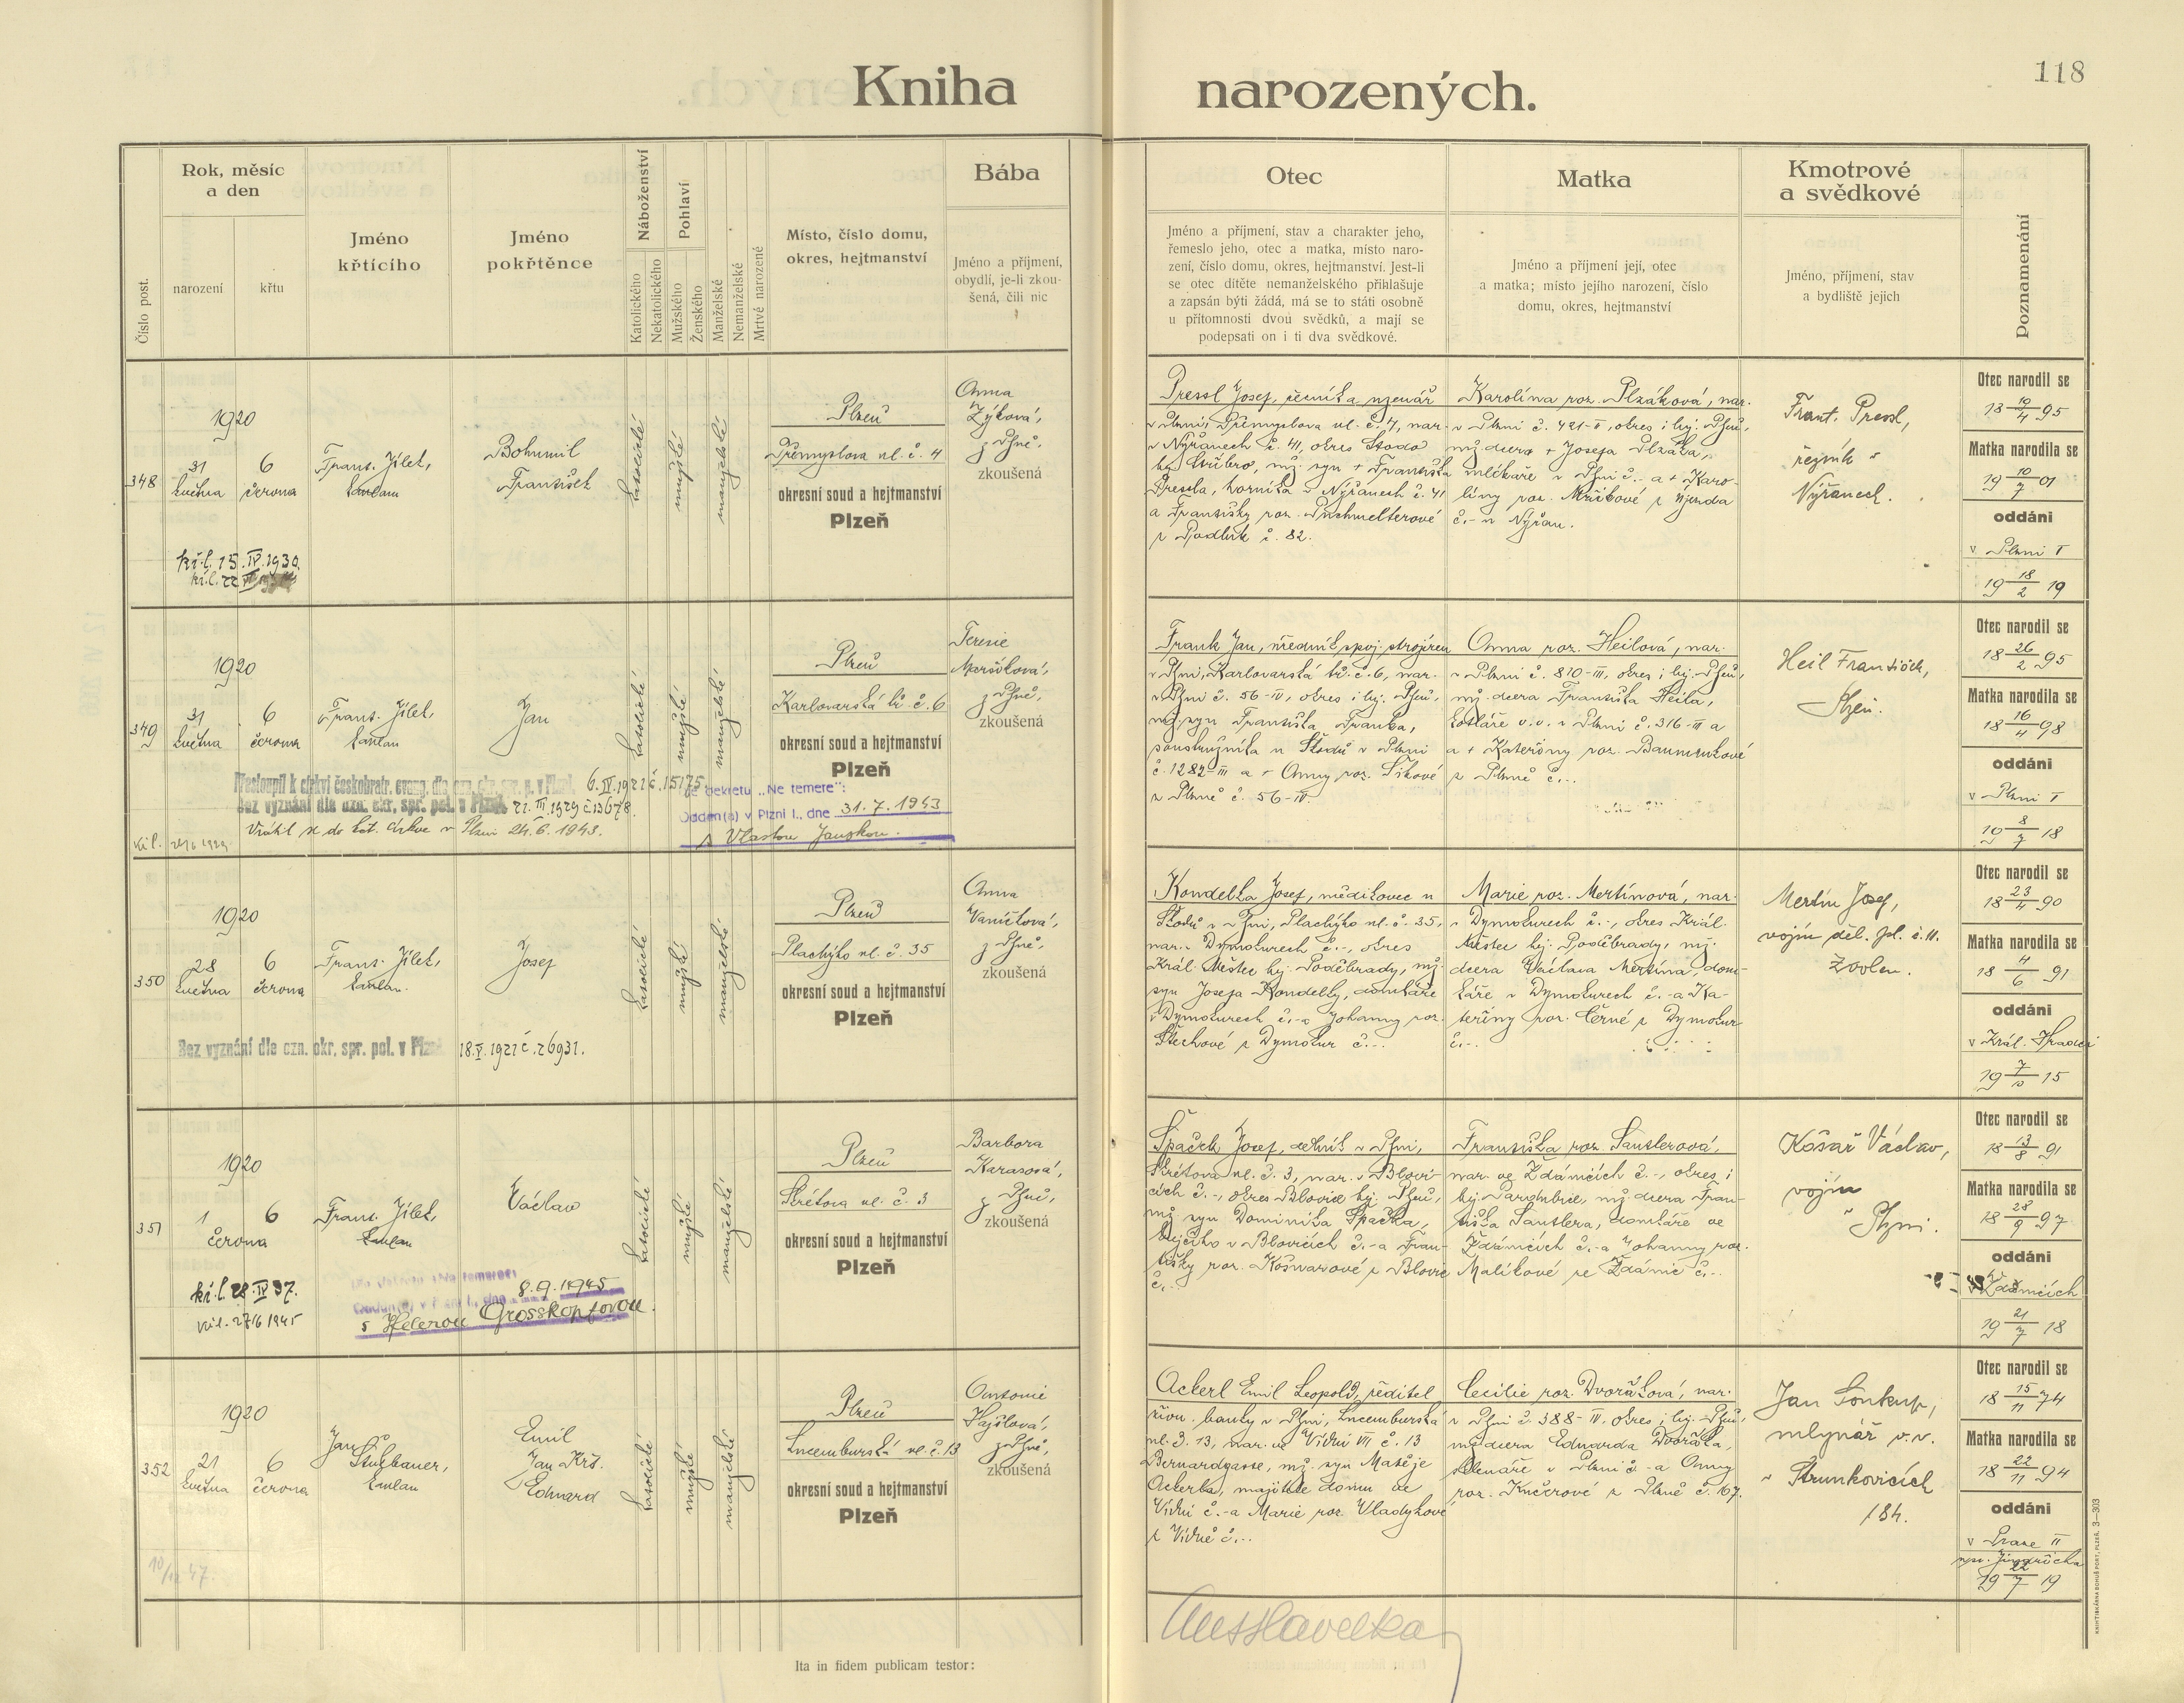 118
Kniha narozených.
Číslo post.
Rok, měsíc
a den
narození
křtu
Jméno
křtícího
Jméno
pokřtěnce
Náboženství
Katolického
Nekatolického
Pohlaví
Mužského
Ženského
Manželské
Nemanželské
Mrtvě narozené
Místo, číslo domu,
okres, hejtmanství
Bába
Jméno a příjmení,
obydlí, je-li zkou-
šená, čili nic
Otec
Jméno a příjmení, stav a charakter jeho,
řemeslo jeho, otec a matka, místo naro-
zení, číslo domu, okres, hejtmanství. Jest-li
se otec dítěte nemanželského přiklašuje
a zapsán býti žádá, má se to státi osobně
u přítomnosti dvou svědků, a mají se
podepsati on i ti dva svědkové.
Matka
Jméno a příjmení její, otec
a matka; místo jejího narození, číslo
domu, okres, hejtmanství
Kmotrové
a svědkové
Jméno, příjmení, stav
a bydliště jejich
Poznamenání
348
1920
31
května
6
června
Frant. Jílek,
kaplan
Bohumil
František
katolické
mužské
manželské
Plzeň
Přemyslova ul. č. 4
okresní soud a hejtmanství
Plzeň
Anna
Zýková,
z Plzně,
zkoušená
kř.l. 15.IV.1930.
kř.l. 22
Pressl Josef, řezník a uzenář
v Plzni, Přemyslova ul. č. 4, nar.
v Nýřanech č. 41, okres Stodo
hej. Stříbro, mž. syn + Františka
Pressla, horníka v Nýřanech č. 41
a Františky roz. Puchmelterové
z Podluk č. 82.
Karolína roz. Plzáková, nar.
v Plzni č. 421-I, okres i hej. Plzeň,
mž. dcera + Josefa Plzáka,
mlékaře v Plzni č.- a + Karo-
líny roz. Mrázkové z Újezda
č.- u Nýřan.
Frant. Pressl,
řezník v
Nýřanech.
Otec narodil se
18 19/4 95
Matka narodila se
19 10/7 01
oddáni
v Plzni I
19 18/2 19
349
1920
31
května
6
června
Frant. Jílek,
kaplan
Jan
katolické
mužské
manželské
Plzeň
Karlovarská tř. č. 6
okresní soud a hejtmanství
Plzeň
Terezie
z Plzně,
zkoušená
Přestoupil k církvi českobratr. evang. dle ozn. okr. spr. p. v Plzni 6.IV.1921 č. 15175
Bez vyznání dle ozn. okr. spr. pol. v Plzni 22.III.1929 č. 13678.
Vrátil se do kat. církve v Plzni 24.6.1943.
Dle dekretu „Ne temere":
Oddán(a) v Plzni I., dne 31.7.1943
s Vlastou Janskou.
Frank Jan, úředník spoj. strojíren
v Plzni, Karlovarská tř. č. 6, nar.
v Plzni č. 56-IV, okres i hej. Plzeň,
mž. syn Františka Franka,
soustružníka u Škodů v Plzni
č. 1282-III a + Anny roz. Šikové
z Plzně č. 56-IV.
Anna roz. Heilová, nar.
v Plzni č. 810-III, okres i hej. Plzeň,
mž. dcera Františka Heila,
kotláře v.v. v Plzni č. 316-III a
a + Kateřiny roz. Baumrukové
z Plzně č.-.
Heil František,
Plzeň.
Otec narodil se
18 26/2 95
Matka narodila se
18 16/4 98
oddáni
v Plzni I
19 8/7 18
350
1920
28
května
6
června
Frant. Jílek,
kaplan.
Josef
katolické
mužské
manželské
Plzeň
Plachého ul. č. 35
okresní soud a hejtmanství
Plzeň
Anna
Vaníčková,
z Plzně,
zkoušená
Bez vyznání dle ozn. okr. spr. pol. v Plzni 18.V.1921 č. 26931.
Kondelka Josef, mědikovec u
Škodů v Plzni, Plachého ul. č. 35,
nar. v Dymokurech č.-, okres
Král. Městec hej. Poděbrady, mž.
syn Josefa Kondelky, domkáře
v Dymokurech č.-a Johanny roz.
Štechové z Dymokur č.-.
Marie roz. Mertínová, nar.
v Dymokurech č.-, okres Král.
Městec hej. Poděbrady, mž.
dcera Václava Mertína, dom-
káře v Dymokurech č.-a Ka-
teřiny roz. Černé z Dymokur
č.-.
Mertín Josef,
vojín děl. pl. č. 11.
Zvolen.
Otec narodil se
18 23/4 90
Matka narodila se
18 4/6 91
oddáni
v Král. Hradci
19 7/10 15
351
1920
1
června
6
Frant. Jílek,
kaplan
Václav
katolické
mužské
manželské
Plzeň
Škrétova ul. č. 3
okresní soud a hejtmanství
Plzeň
Barbora
Karasová,
z Plzně,
zkoušená
kř.l. 28.IV 37.
kř.l. 27/6 1945
Dle dekretu „Ne temere":
Oddán(a) v Plzni I., dne 8.9.1945
s Helenou Grosskopfovou.
Špaček Josef, četník v Plzni,
Škrétova ul. č. 3, nar. v Blovi-
cích č.-, okres Blovice hej. Plzeň,
mž. syn Dominika Špačka,
krejčího v Blovicích č.-a Fran-
tišky roz. Košvarové z Blovic
č.-.
Františka roz. Santlerová,
nar. ve Zdánicích č.-, okres i
hej. Pardubice, mž. dcera Fran-
tiška Santlera, domkáře ve
Ždánicích č.-a Johanny roz.
Malíkové ze Ždánic č.-.
Košař Václav,
vojín
v Plzni.
Otec narodil se
18 13/8 91
Matka narodila se
18 28/9 97
oddáni
Ždánicích
19 21/7 18
352
1920
21
května
6
června
Jan
Štulbauer,
kaplan
Emil
Jan Křt.
Eduard
katolické
mužské
manželské
Plzeň
Lucemburská ul. č. 13
okresní soud a hejtmanství
Plzeň
Antonie
Hajšlová,
z Plzně,
zkoušená
10/12 47.
Ackerl Emil Leopold, ředitel
živn. banky v Plzni, Lucemburská
ul. č. 13, nar. ve Vídni VII č. 13
Bernardgasse, mž. syn Matěje
Ackerla, majitele domu ve
Vídni č.-a Marie roz. Vladykové
z Vídně č.-.
Cecilie roz. Dvořáková, nar.
v Plzni č. 388-IV, okres i hej. Plzeň,
mž. dcera Eduarda Dvořáka,
sklenáře v Plzni č.-a Anny
roz. Kučerové z Plzně č. 167.
Jan Soukup,
mlynář v.v.
v Strunkovicích
184.
Otec narodil se
18 15/11 74
Matka narodila se
18 22/11 94
oddáni
v Praze II
u sv. Jindřicha
19 22/7 19
Ita in fidem publicam testor:
KNIHTISKÁRNA BOHUŠ PORT, PLZEŇ. 3—303